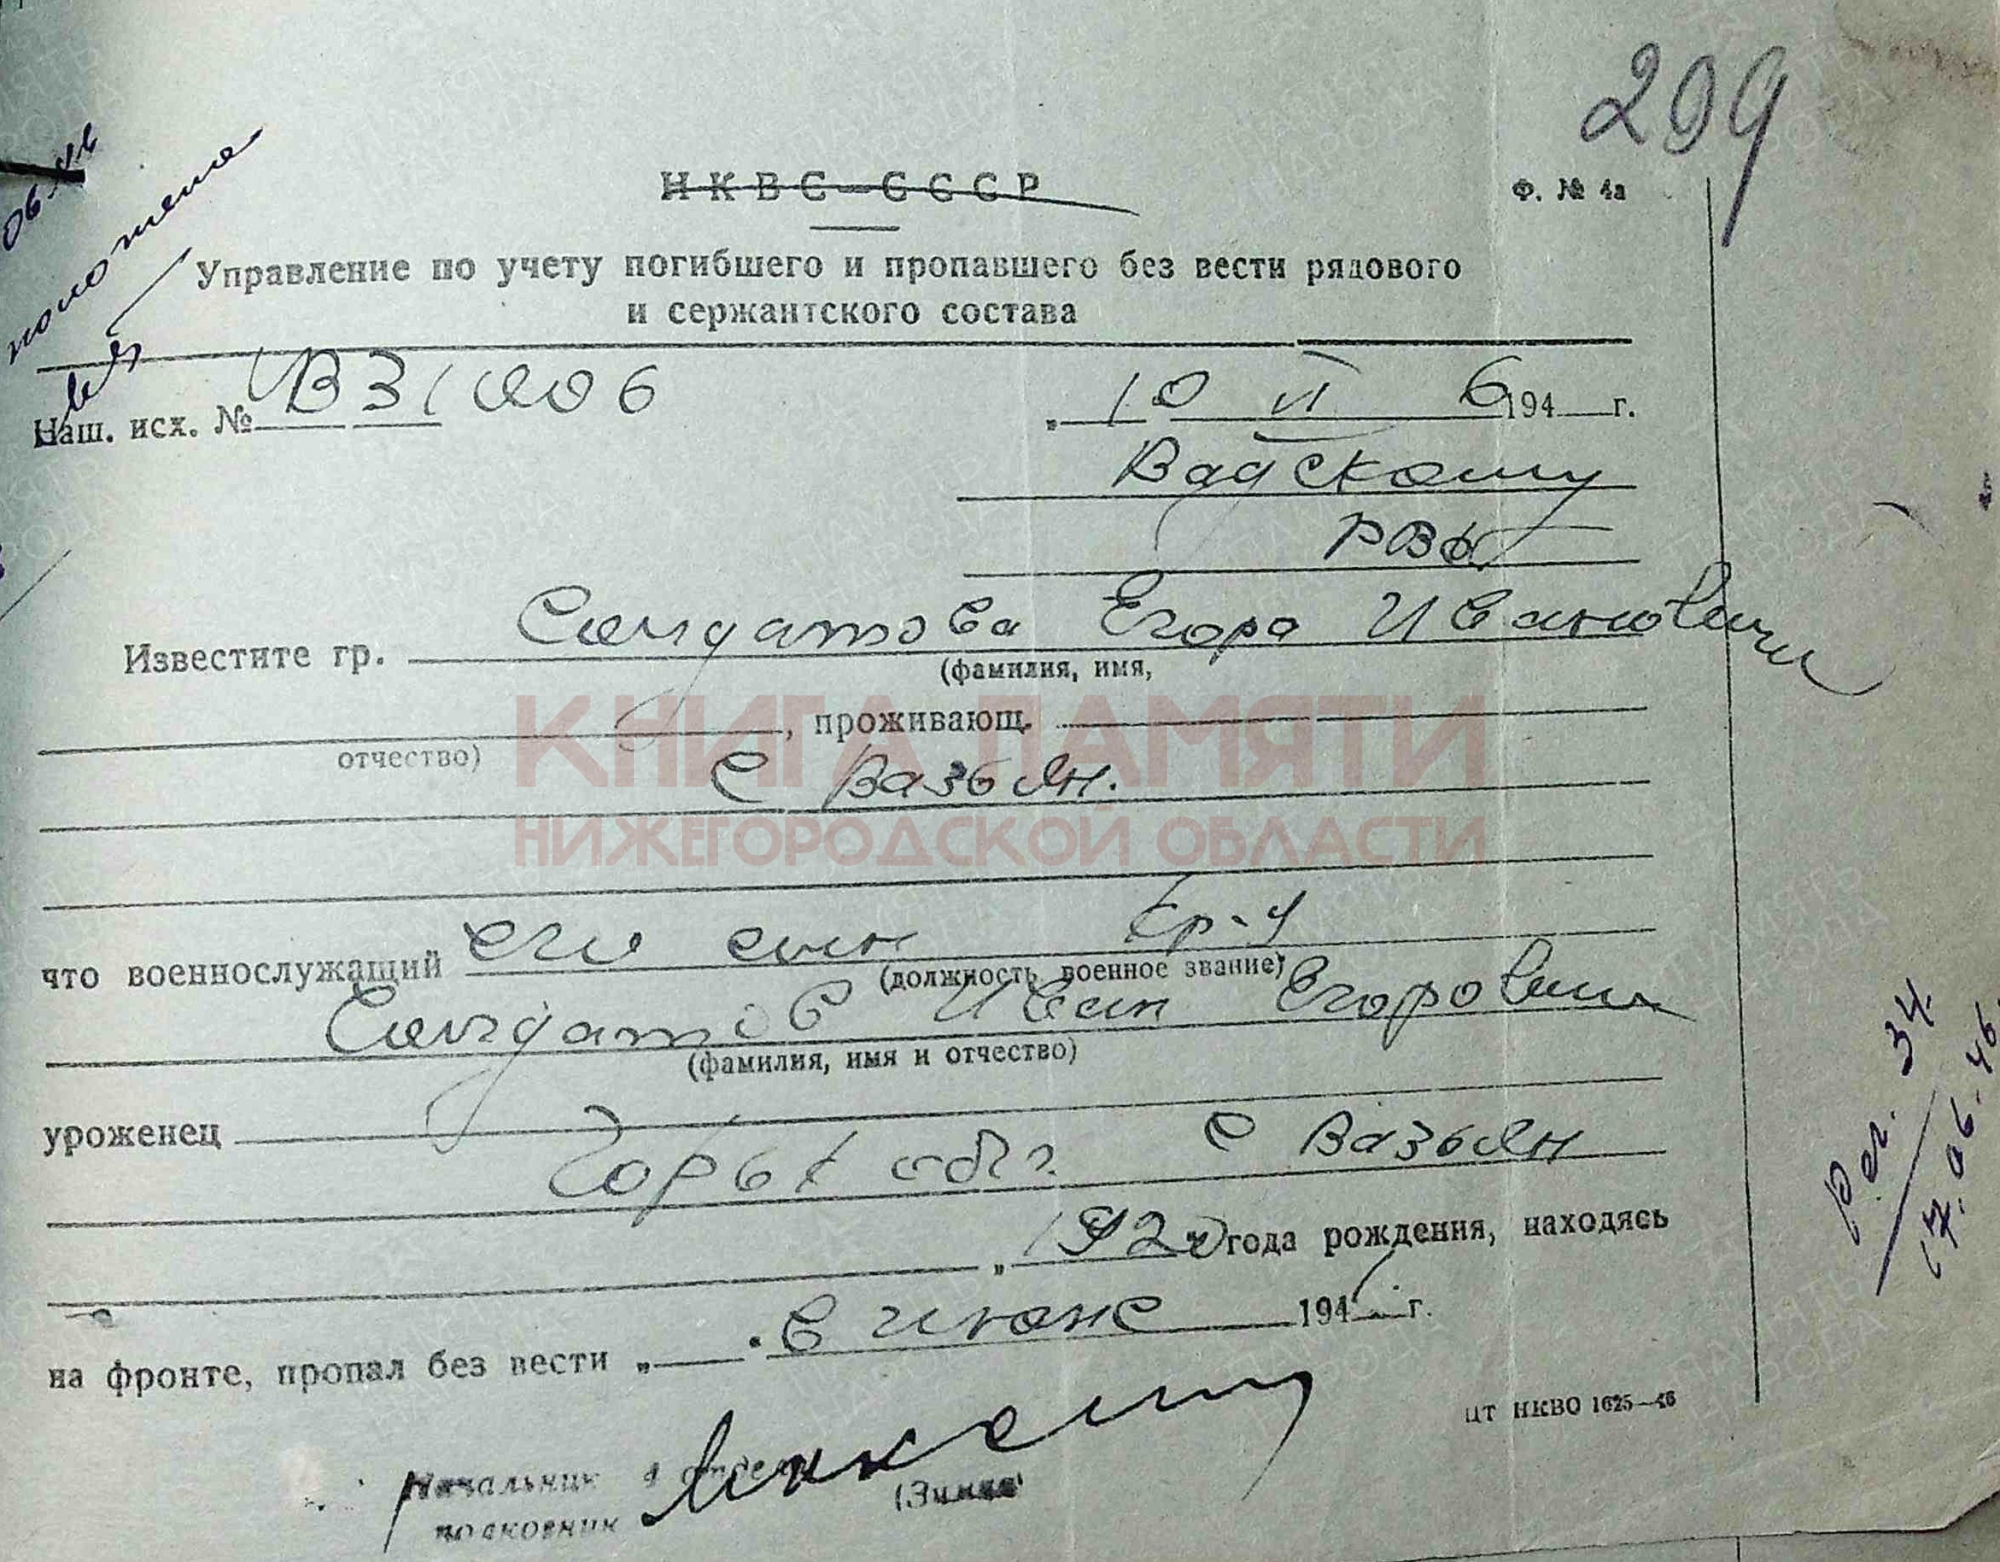 299
НКВС—СССР
Ф. № 4а
Управление по учету погибшего и пропавшего без вести рядового
и сержантского состава
Наш. исх. № В31006
„ 10 VI 6 194 г.
Вадскому
РВК
Известите гр. Солдатова Егора Ивановича
(фамилия, имя,
, проживающ.
отчество)
с Вазьян.
КНИГА ПАМЯТИ
НИЖЕГОРОДСКОЙ ОБЛАСТИ
что военнослужащий его сын кр-ц
(должность, военное звание)
Солдатов Иван Егорович
(фамилия, имя и отчество)
уроженец
Горьк обл. с Вазьян
„ 1920 года рождения, находясь
на фронте, пропал без вести „ в июне 194 г.
ЦТ НКВО 1625—46
Начальник 4 отдела
полковник
Рег. 34
17.06.46.